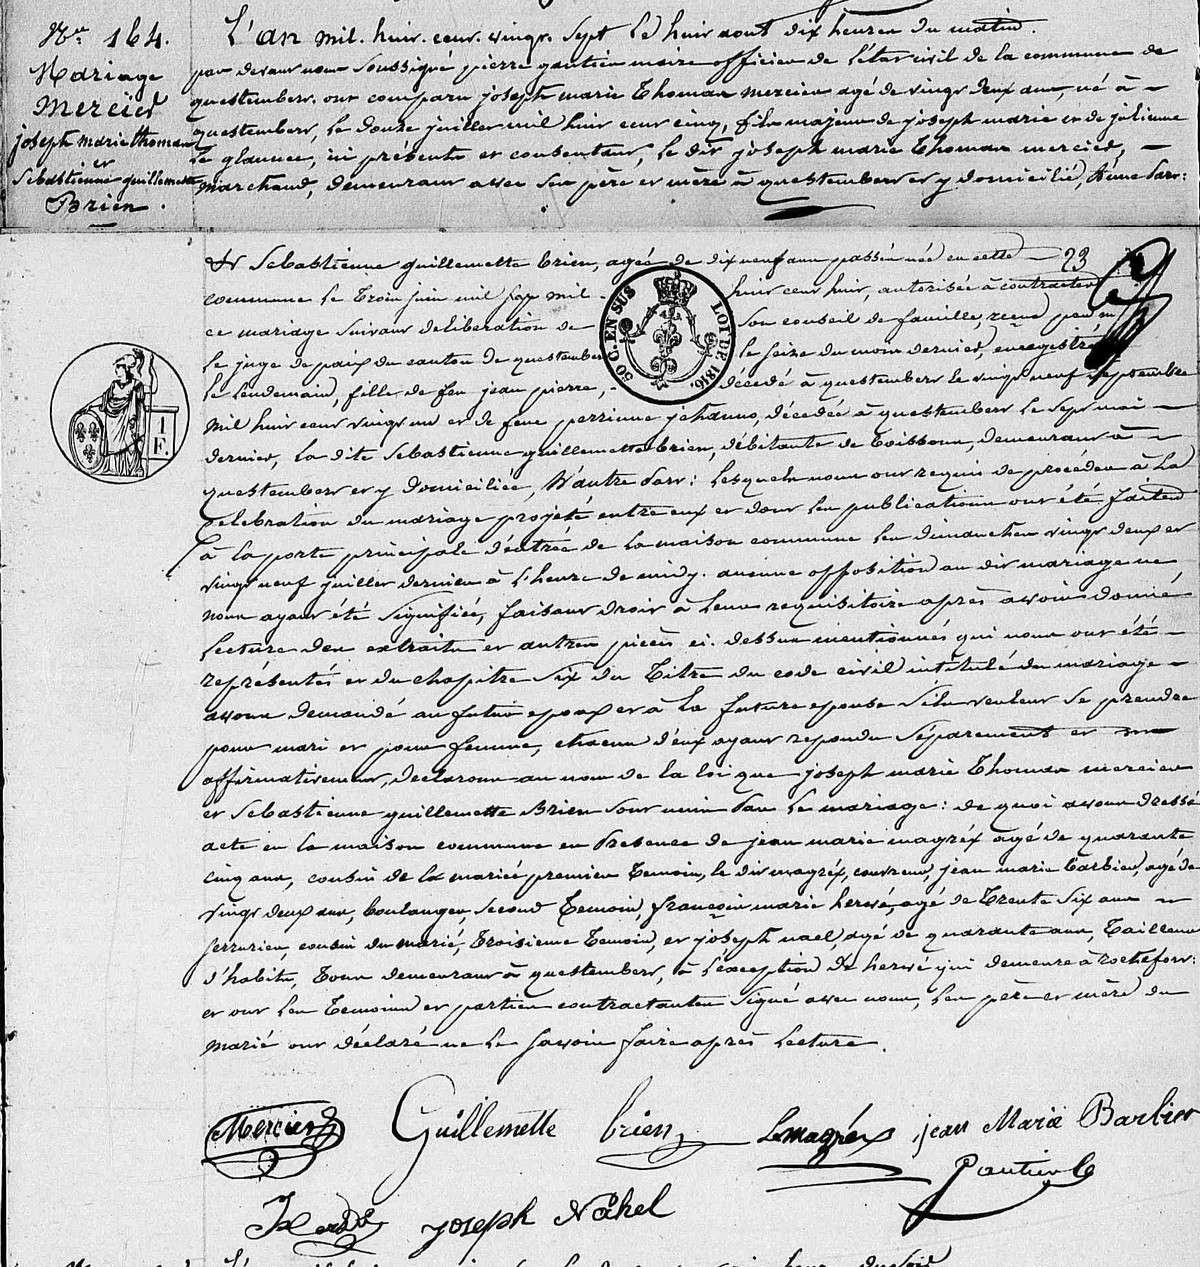 Nro 164.
Mariage
Mercier
joseph marie thomas
et
Sébastienne guillemette
Brien.
L'an mil huit cent vingt sept le huit aout dix heures du matin.
par devant nous soussigné pierre gautier maire officier de l'état civil de la commune de
questembert, ont comparu joseph marie Thomas mercier agé de vingt deux ans, né à
questembert, le douze juillet mil huit cent cinq, fils majeur de joseph marie et de julienne
le glaunec, ici présents et consentant, le dit joseph marie Thomas mercier,
marchand, demeurant avec ses père et mère à questembert et y domicilié, d'une part:
Et Sébastienne guillemette brien, agée de dix neuf ans passés née en cette
23
commune le trois juin mil huit cent huit, autorisée à contracter
ce mariage suivant délibération de son conseil de famille, reçue par m
le juge de paix du canton de questembert le seize du mois dernier, enregistré
le lendemain, fille de feu jean pierre, décédé à questembert le vingt neuf septembre
mil huit cent vingt un et de feue perrinne jehanno, décédée à questembert le sept mai
dernier, la dite Sébastienne guillemette brien, débitante de boissons, demeurant à
questembert et y domiciliée, d'autre part: Lesquels nous ont requis de procéder à la
célébration du mariage projété entre eux et dont les publications ont été faites
à la porte principale d'entrée de la maison commune les dimanches vingt deux et
vingt neuf juillet dernier à l'heure de midy. aucune opposition au dit mariage ne
nous ayant été signifiée, faisant droit à leur requisitoire après avoir donné
lecture des extraits et autres pièces ci-dessus mentionnés qui nous ont été
réprésentés et du chapitre six du Titre du code civil intitulé du mariage
avons demandé au futur epoux et à la future epouse s'ils veulent se prendre
pour mari et pour femme, chacun d'eux ayant repondu séparement et
affirmativement, déclarons au nom de la loi que joseph marie Thomas mercier
et Sébastienne guillemette Brien sont unis par le mariage: de quoi avons dressé
acte en la maison commune en présence de jean marie magréx agé de quarante
cinq ans, cousin de la mariée premier témoin, le dit magréx, couvreur, jean marie barbier, agé de
vingt deux ans, boulanger, second témoin, françois marie hervé, agé de trente six ans
serrurier, cousin du marié, troisième témoin, et joseph nael, agé de quarante ans, tailleur
d'habits, tous demeurant à questembert, à l'exception de hervé qui demeure à rochefort:
et ont les témoins et parties contractantes signé avec nous, les père et mère du
marié ont déclaré ne le savoir faire après lecture.
50 C. EN SUS
LOI DE 1816.
1
F.
Mercier
Guillemette brien
Lemagréx
jean Marie Barbier
Gautier
joseph Nahel